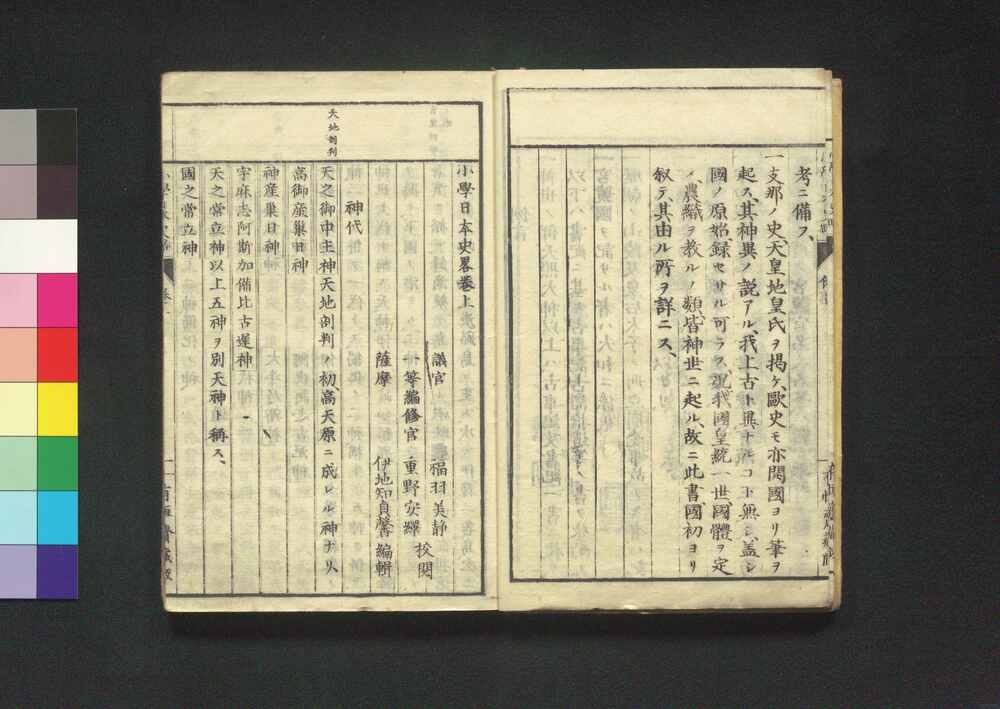 考ニ備ス、
一支那ノ史、天皇地皇氏ヲ掲ケ、歐史モ亦開國ヨリ筆ヲ
起ス、其神異ノ説アル、我上古ト異ナルコト無シ、蓋シ
國ノ原始、録セサル可ラス、況我國皇統一世、國體ヲ定
メ、農織ヲ教ルノ類、皆神世ニ起ル、故ニ此書、國初ヨリ
叙テ、其由ル所ヲ詳ニス、
小學日本史畧卷上
議官 福羽美静
一等編修官 重野安繹 校閲
薩摩 伊地知貞馨 編輯
神代
天地剖判
天之御中主神天地剖判ノ初、高天原ニ成レル神ナリ、
高御産巣日神
神産巣日神
宇麻志阿斯加備比古遲神
天之常立神以上五神ヲ別天神ト稱ス、
國之常立神